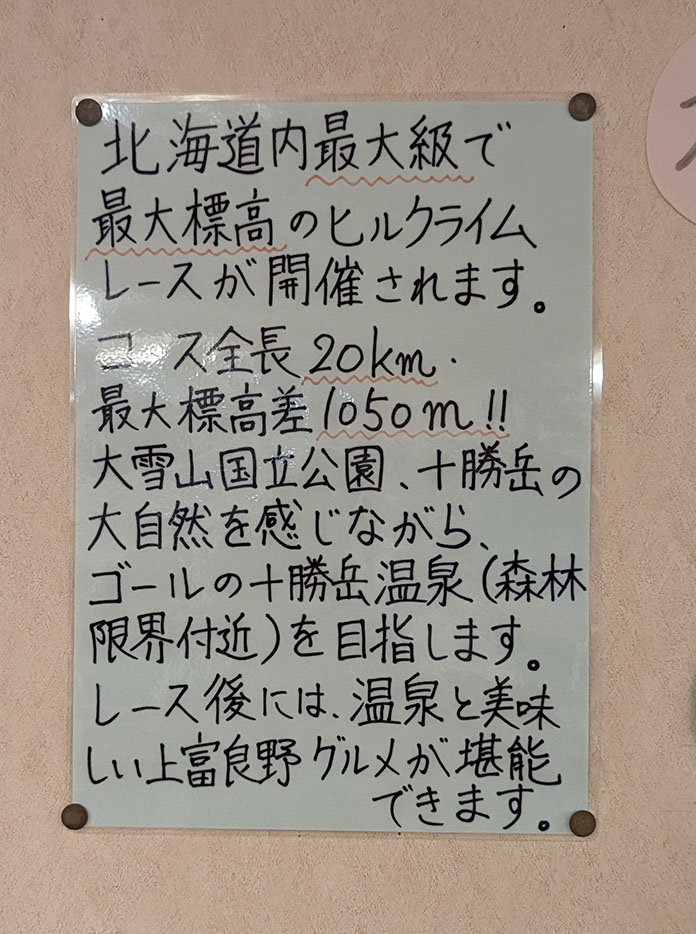 北海道内最大級で
最大標高のヒルクライム
レースが開催されます。
コース全長20km.
最大標高差1050m!!
大雪山国立公園、十勝岳の
大自然を感じながら、
ゴールの十勝岳温泉(森林
限界付近)を目指します。
レース後には、温泉と美味
しい上富良野グルメが堪能
できます。